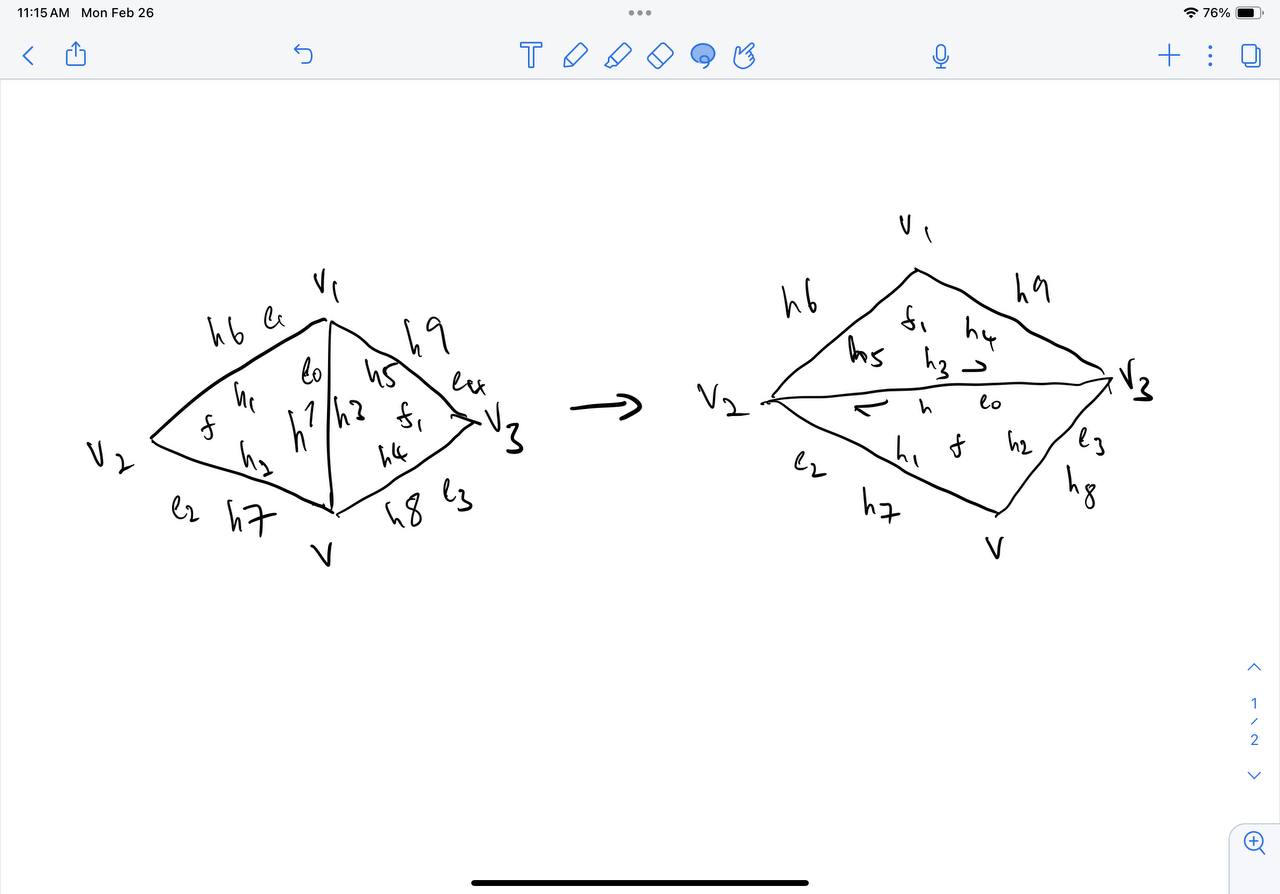 11:15 AM Mon Feb 26
76%
T
V1
h6 e1
h9
e0
h5
e4
h1
f
h
h3
f1
V3
V2
h2
h4
e2 h7
h8 e3
V
V1
h6
h9
f1
h4
h5
h3
V3
V2
h
e0
e2
h1
f
h2
e3
h7
h8
V
1
2